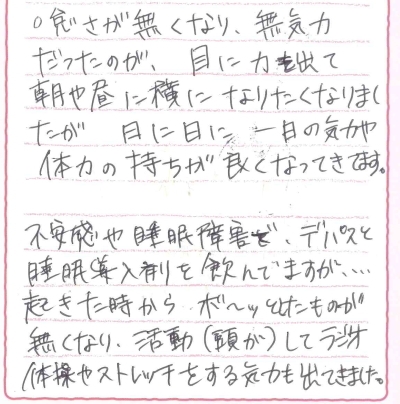 ○怠さが無くなり、無気力
だったのが、目に力も出て
朝や昼に横になりたくなりまし
たが 日に日に 一日の気力や
体力の持ちが良くなってきてます。
不安感や睡眠障害で、デパスと
睡眠導入剤を飲んでますが、…
起きた時からボ〜ッとしたものが
無くなり、活動(頭が)してラジオ
体操やストレッチをする気力も出てきました。